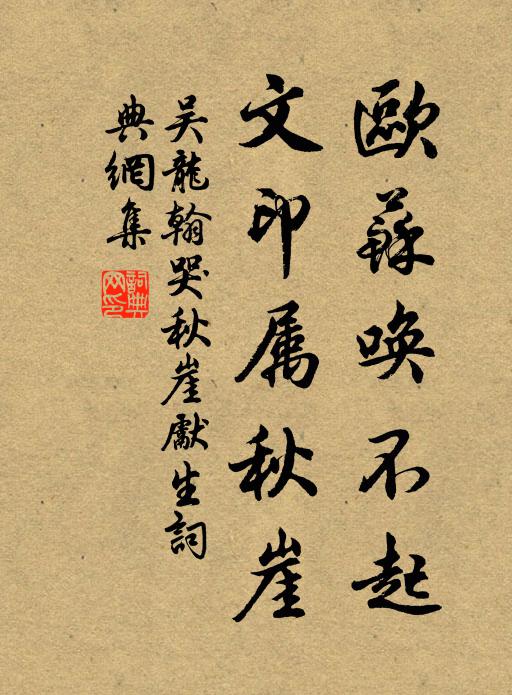 歐蘇喚不起
文印属秋崖
吴龍翰哭秋崖獻生詞
典網集
詞典
网印